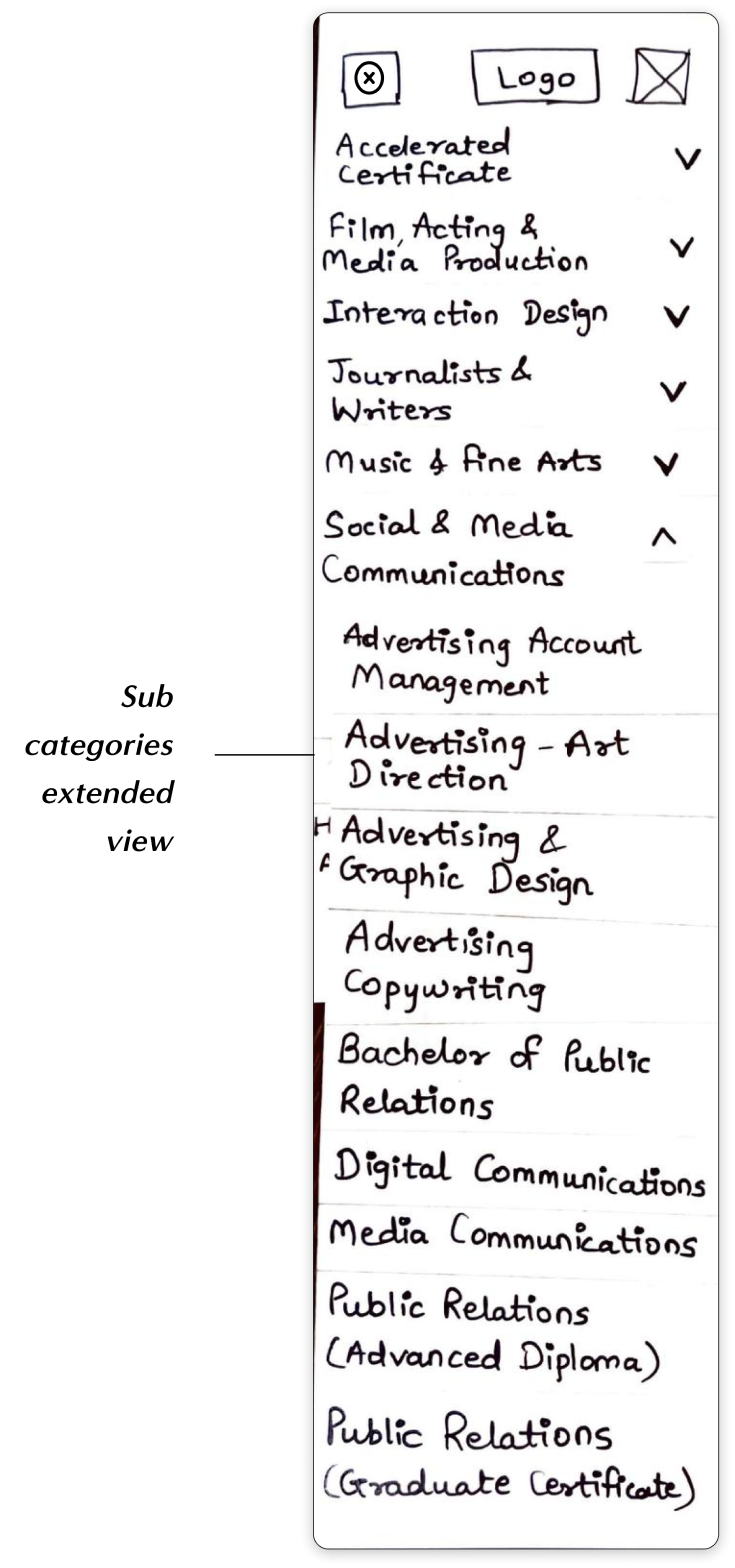 Logo
Accelerated
Certificate
Film, Acting &
Media Production
Interaction Design
Journalists &
Writers
Music & fine Arts
Social & Media
Communications
Advertising Account
Management
Sub
categories
extended
view
Advertising - Art
Direction
H
A
Advertising &
Graphic Design
Advertising
Copywriting
Bachelor of Public
Relations
Digital Communications
Media Communications
Public Relations
(Advanced Diploma)
Public Relations
(Graduate Certificate)